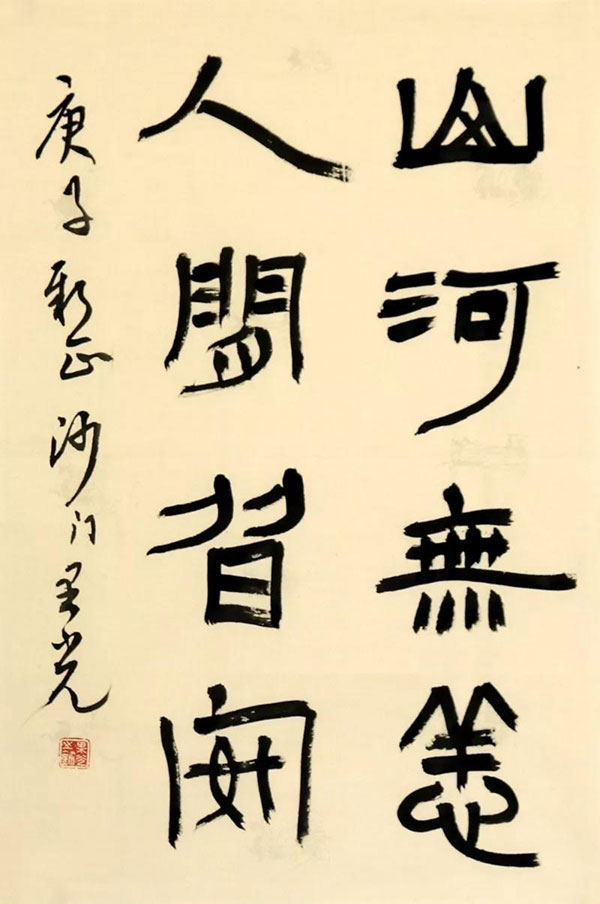 山河無恙
人間皆安
庚子新正沙门光